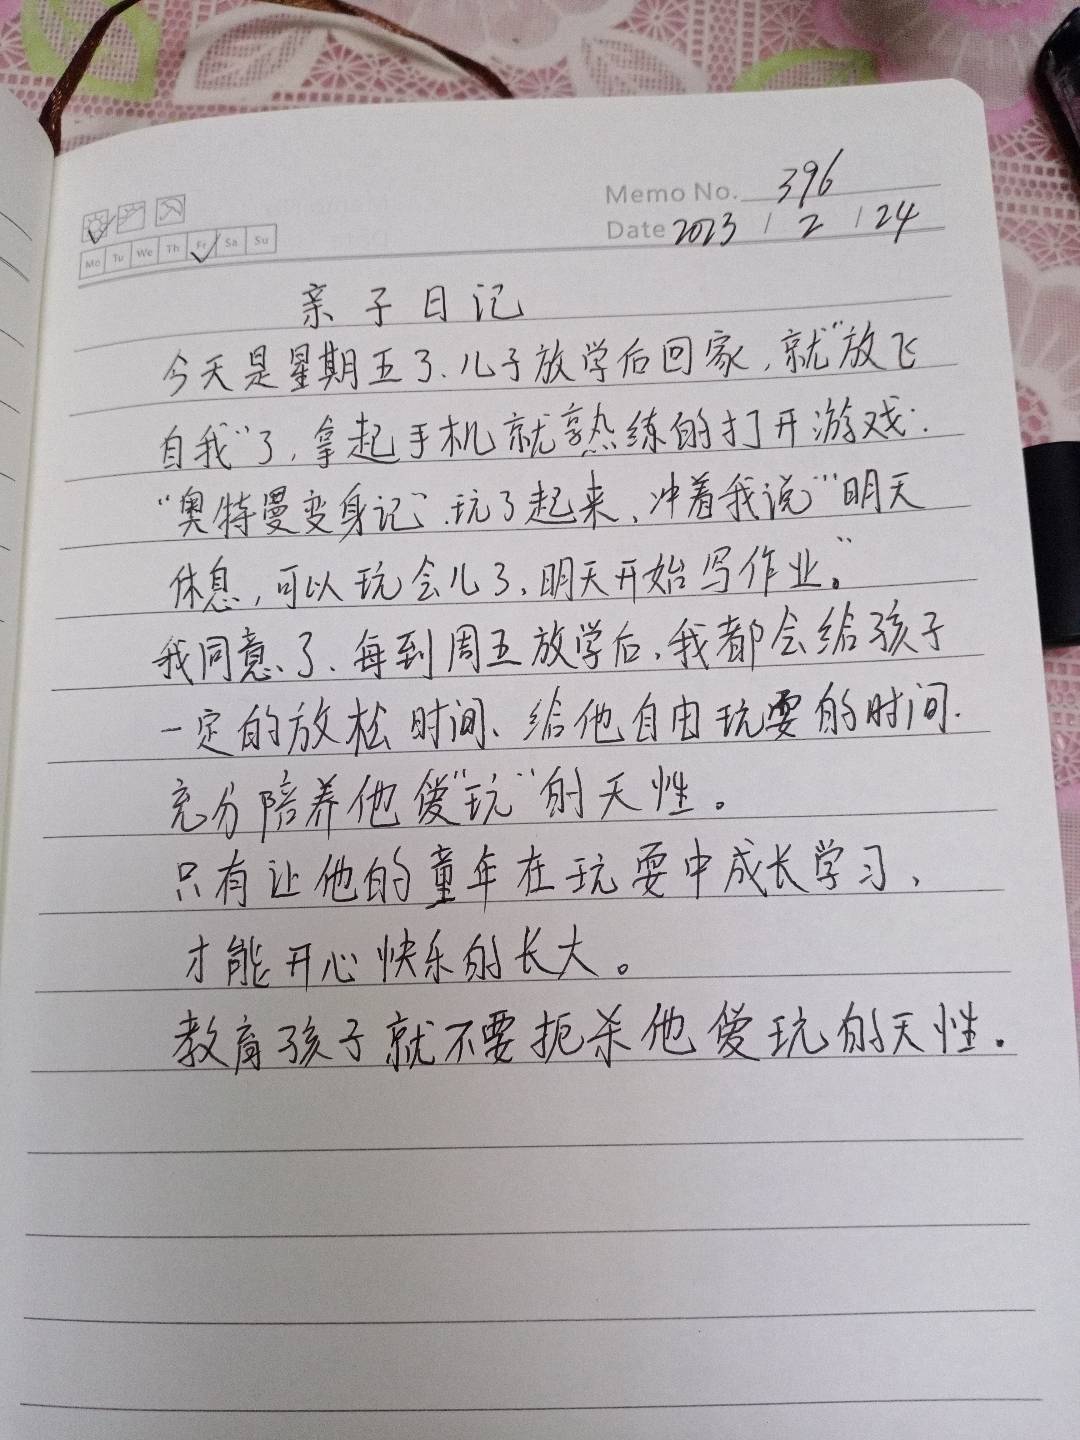 Memo No. 396
Mo Tu We Th Fr Sa Su
Date 2023 / 2 / 24
亲子日记
今天是星期五了、儿子放学后回家,就“放飞
自我”了,拿起手机就熟练的打开游戏:
“奥特曼变身记”、玩了起来、冲着我说“明天
休息,可以玩会儿了、明天开始写作业。”
我同意了、每到周五放学后、我都会给孩子
一定的放松时间、给他自由玩耍的时间.
充分陪养他爱“玩”的天性。
只有让他的童年在玩耍中成长学习、
才能开心快乐的长大。
教育孩子就不要扼杀他爱玩的天性.